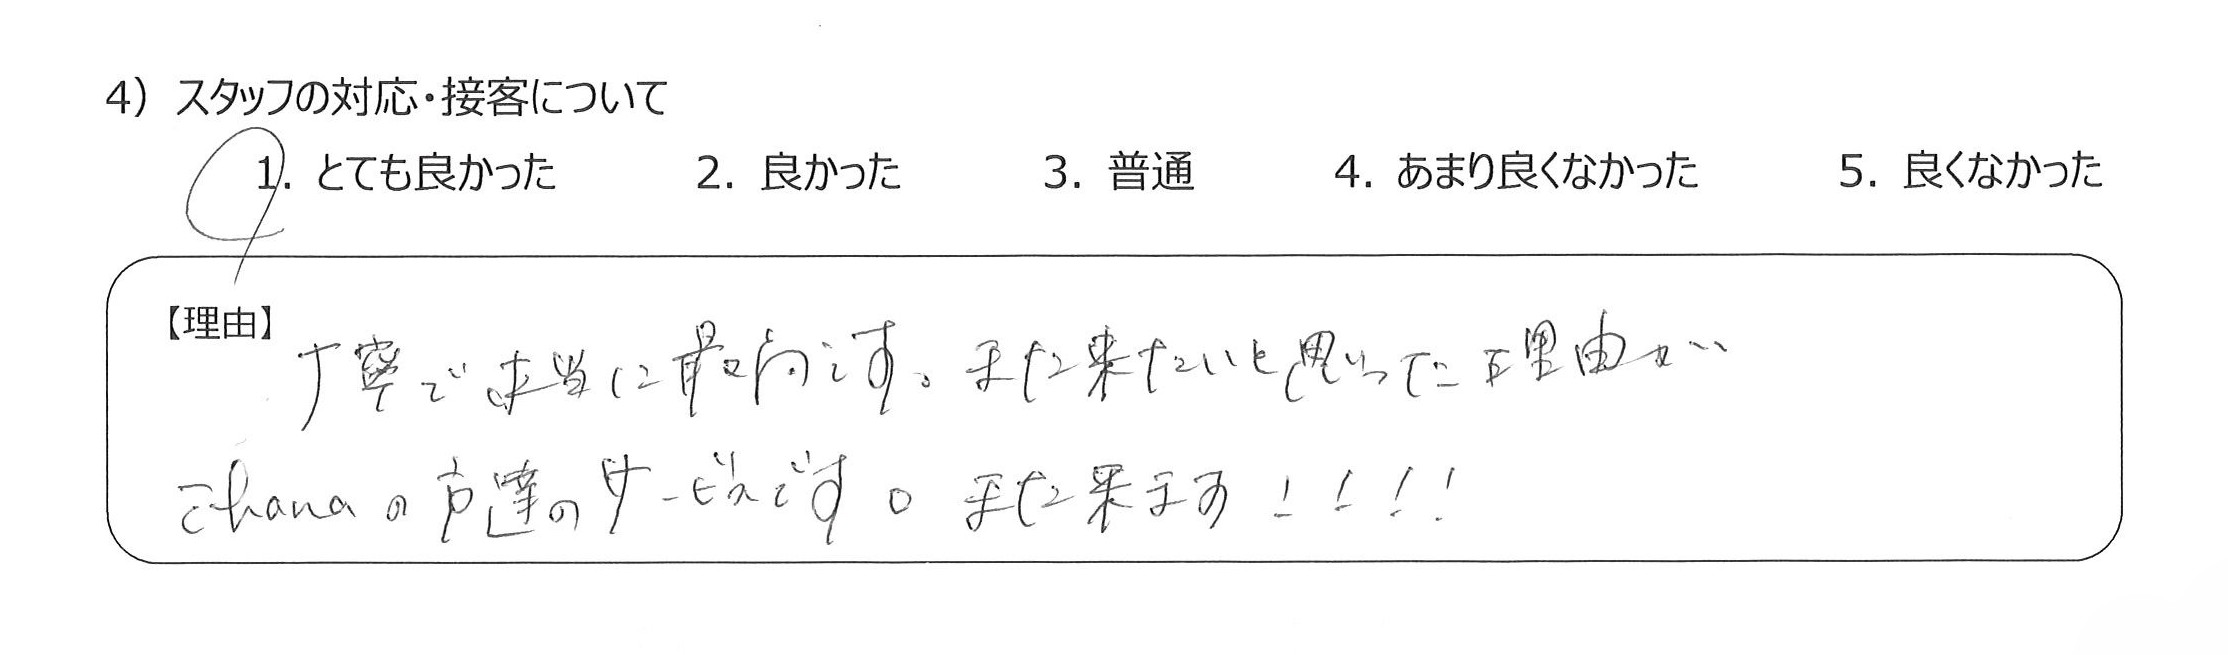 4) スタッフの対応・接客について
1. とても良かった 2. 良かった 3. 普通 4. あまり良くなかった 5. 良くなかった
【理由】
丁寧で本当に最高です。また来たいと思った理由が
hanaの方達のサービスです。また来ます！！！！